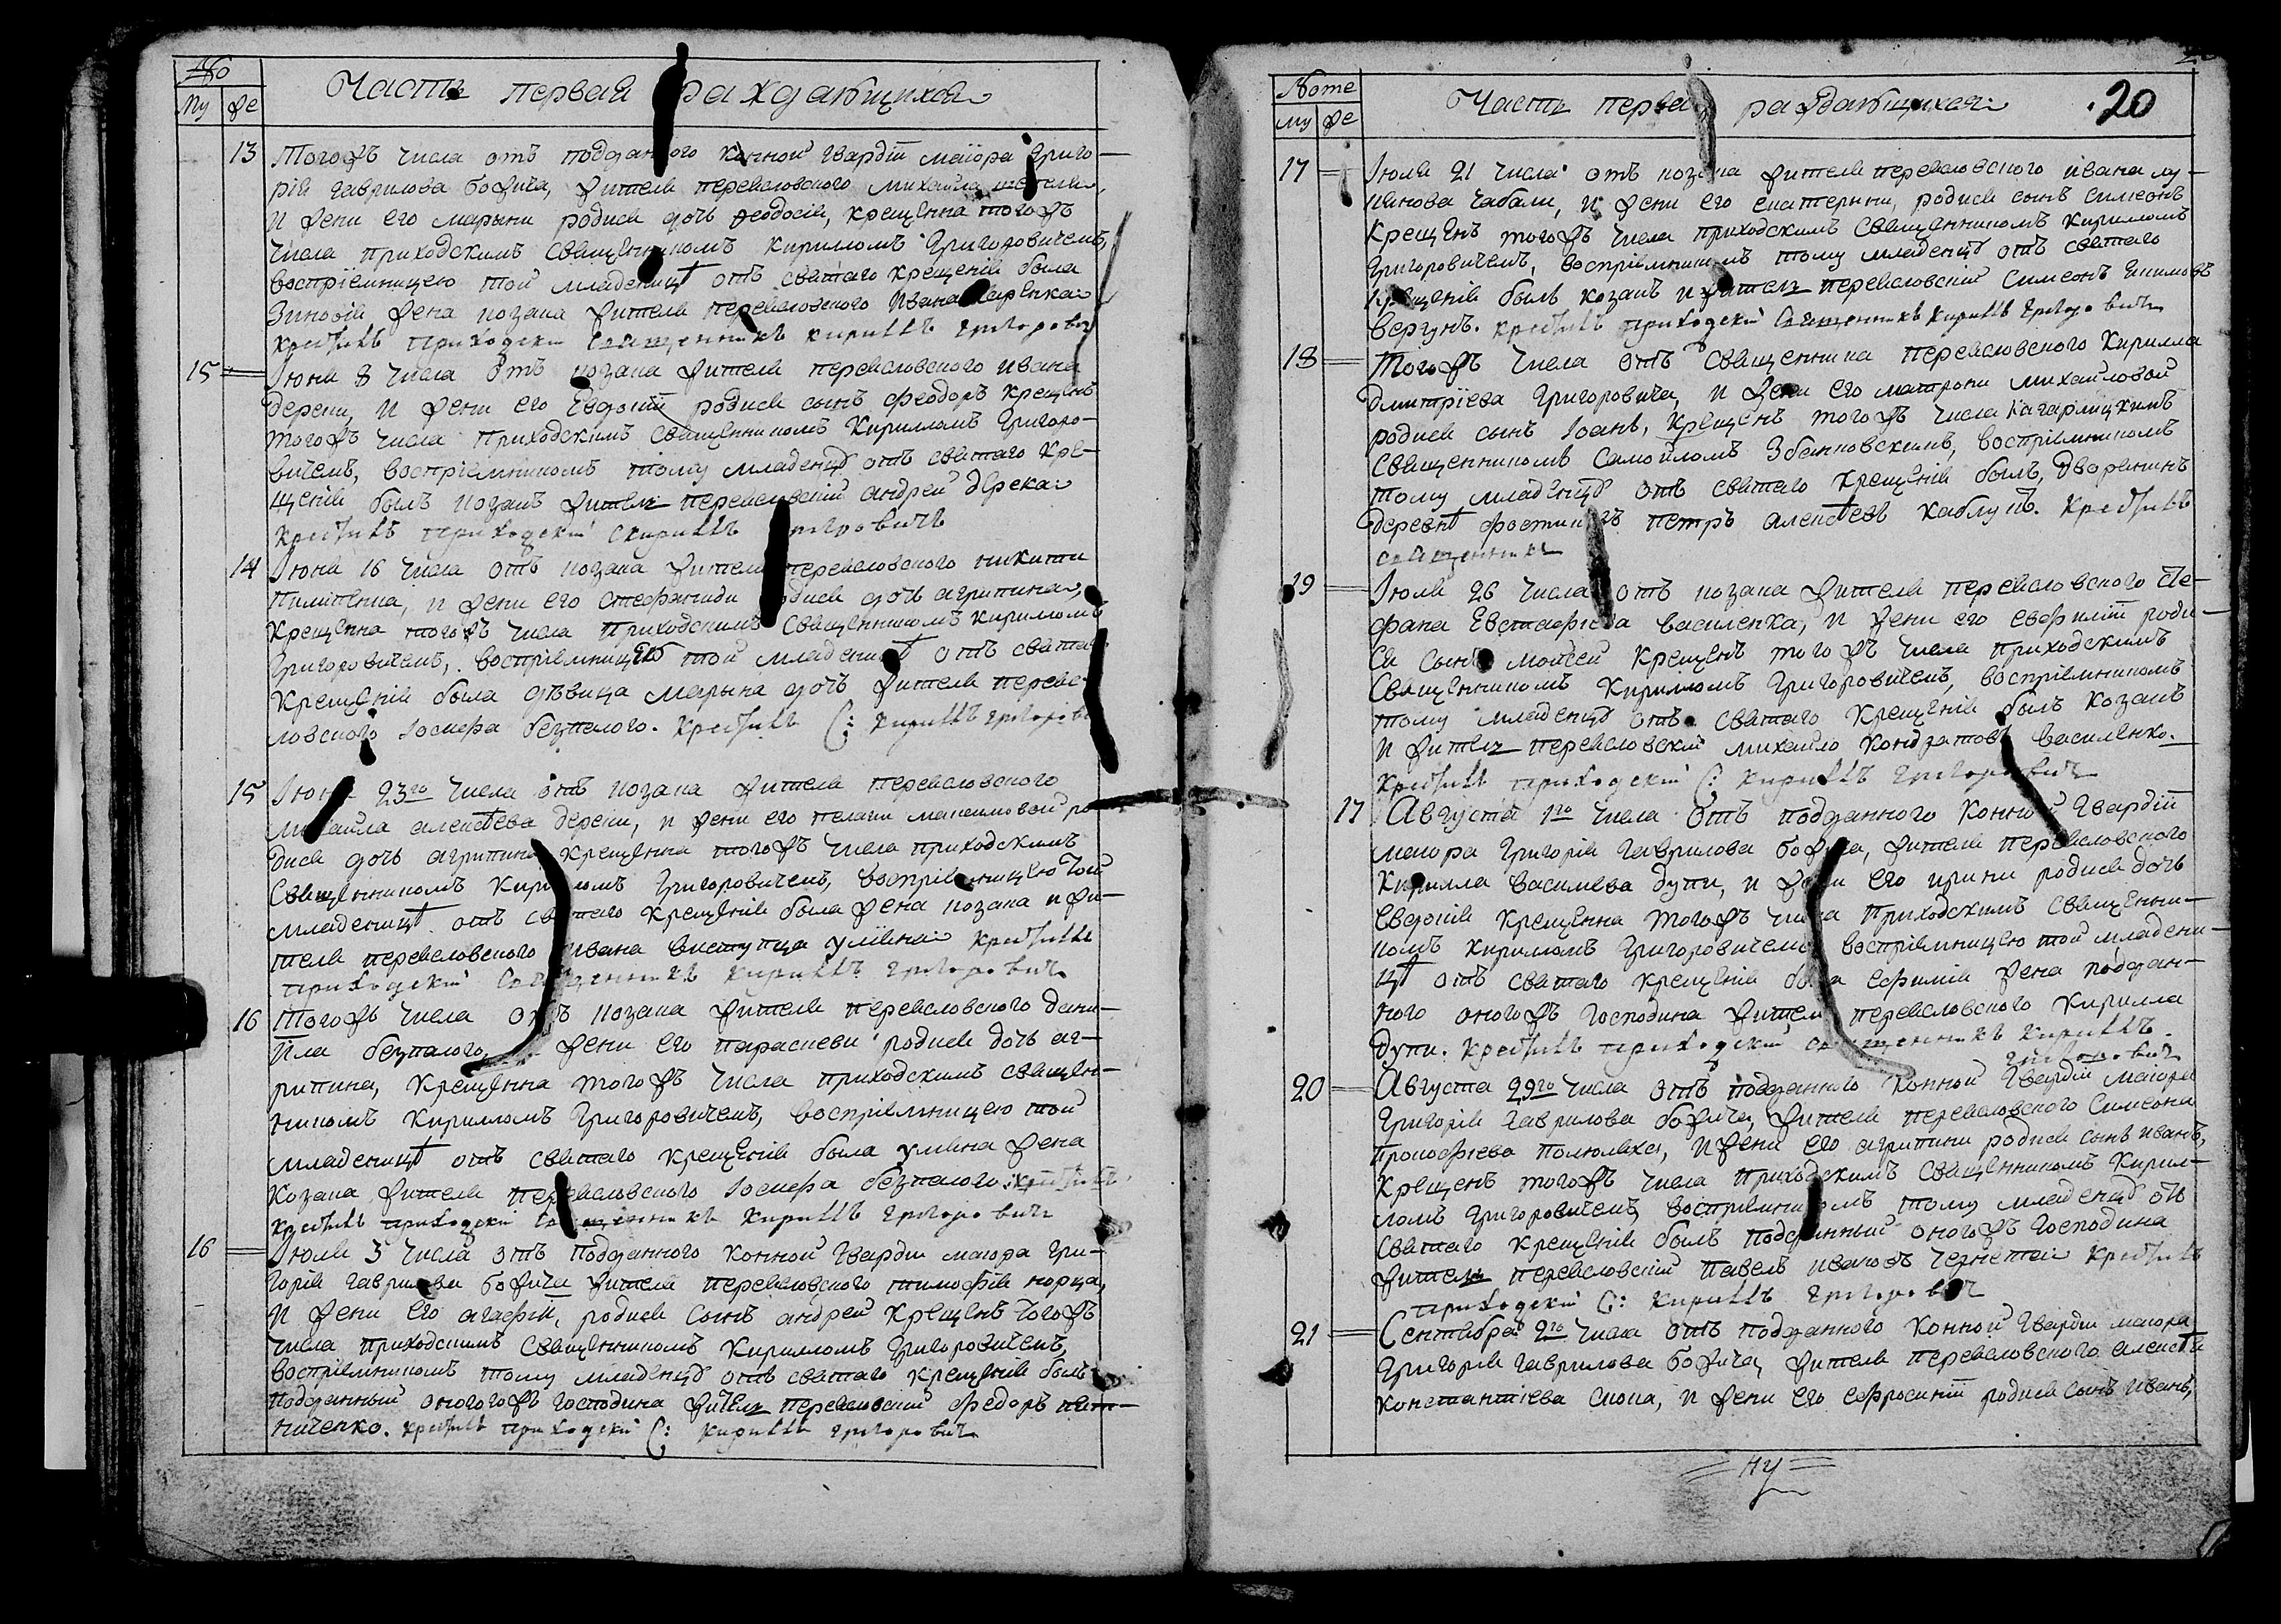 №
Му фе
Часть первая раждающихся
13 Тогожъ числа отъ подданного конной гвардіи маіора Григо-
рія гаврилова божича, жителя переяславского михайла
и жени его марыни родися дочь феодосія, крещенна тогожъ
числа приходскимъ священникомъ кирилломъ Григоровичемъ,
воспріемницею той младеницѣ отъ святаго крещенія была
Зиновія жена козака жителя переяславского ивана
крестилъ приходскій священникъ кириллъ григорович
15 Іюня 8 числа отъ козака жителя переясловского ивана
дереки, и жени его Евдокіи родися сынъ феодоръ крещенъ
тогожъ числа приходскимъ священникомъ Кириломъ Григоро-
вичемъ, воспріемникомъ тому младенцу отъ святаго кре-
щенія былъ козакъ жителъ переясловскій андрей дерека
крестилъ приходскій с кириллъ григоровичъ
14 Іюня 16 числа отъ козака жителя переясловского никити
пилипенка, и жени его стефаниди родися дочь агрипина,
крещенна тогожъ числа приходскимъ священникомъ кириломъ
Григоровичемъ, воспріемницею той младеницѣ отъ святаго
крещенія была дѣвица марына дочь жителя переяс-
ловского іосифа безпалого. крестилъ с: кириллъ григорович
15 Іюня 23го числа отъ козака жителя переясловского
михайла алексѣева дереки, и жени его пелагии максимовой ро-
дися дочь агрипина крещенна тогожъ числа приходскимъ
священникомъ кирилломъ Григоровичемъ, воспріемницею той
младеницѣ отъ святаго крещенія была жена козака и жи-
теля переясловского ивана виступца уліяна крестилъ
приходскій священникъ кириллъ григорович
16 Тогожъ числа отъ козака жителя переясловского дани-
ила безпалого, и жени его параскеви родися дочь аг-
рипина, крещенна тогожъ числа приходскимъ священ-
никомъ кирилломъ Григоровичемъ, воспріемницею той
младеницѣ отъ святаго крещенія была улияна жена
козака жителя переясловского Іосифа безпалого.
крестилъ приходскій священникъ кириллъ григорович
16 Іюля 5 числа отъ подданного конной гвардіи маіора Гри-
горія гаврилова божича жителя переясловского тимофія норца,
и жени его агафіи, родися сынъ андрей крещенъ тогожъ
числа приходскимъ священникомъ Кириломъ Григоровичемъ,
воспріемникомъ тому младенцу отъ святаго крещенія былъ
подданный оногожъ господина жителъ переясловскій федоръ
ниченко. крестилъ приходскій с: кириллъ григорович
Nоме
му фе
Часть первая раждающихся 20
17 Іюля 21 числа отъ козака жителя переясловского ивана лу-
кянова чабали, и жени его екатерини, родися сынъ симеонъ
крещенъ тогожъ числа приходскимъ священникомъ кириломъ
Григоровичемъ, воспріемникомъ тому младенцу отъ святаго
крещенія былъ козакъ и жителъ переясловскій Симеонъ
вергунъ. крестилъ приходскій священникъ кириллъ григорович
18 Тогожъ числа отъ священника переясловского Кирилла
дмитріева Григоровича, и жени его матрони михайловой
родися сынъ Іоанъ, крещенъ тогожъ числа кагарлицкимъ
священникомъ Самоиломъ Збанковскимъ, воспріемникомъ
тому младенцу отъ святаго крещенія былъ, дворенинъ
деревнѣ петръ алексѣевъ каблуковъ. крестилъ
священникъ
19 Іюля 26 числа отъ козака жителя переясловского сте-
фана Евстафіева василенка, и жени его евфиміи роди-
ся сынъ мойсей крещенъ тогожъ числа приходскимъ
священникомъ кирилломъ Григоровичемъ, воспріемникомъ
тому младенцу отъ святаго крещенія былъ козакъ
и жителъ переясловскій михайло кондратовъ василенко.
крестилъ приходскій с: кириллъ григорович
17 Августа 1го числа отъ подданного конной гвардіи
маіора Григорія гаврилова божича, жителя переясловского
кирилла василіева дупи, и жени его ирини родися дочь
евдокія крещенна тогожъ числа приходскимъ священни-
комъ кириломъ Григоровичемъ воспріемницею той младени-
цѣ отъ святаго крещенія была ефимія жена поддан-
ного оногожъ господина жителя переясловского кирилла
дупи. крестилъ приходскій священникъ кириллъ
григорович
20 Августа 29го числа отъ подданного конной гвардіи маіора
Григорія гаврилова божича, жителя переясловского симеона
прокофіева полюляха, и жени его агрипини родися сынъ иванъ,
крещенъ тогожъ числа приходскимъ священникомъ кирил-
ломъ Григоровичемъ, воспріемникомъ тому младенцу отъ
святаго крещенія былъ подданный оногожъ господина
жителъ переясловскій павелъ ивановъ крестилъ
приходскій с: кириллъ григорович
21 Сентября 2го числа отъ подданного конной гвардіи маіора
Григорія гаврилова божича, жителя переясловского алексѣя
константіева скопа, и жени его ефросиніи родися сынъ иванъ,